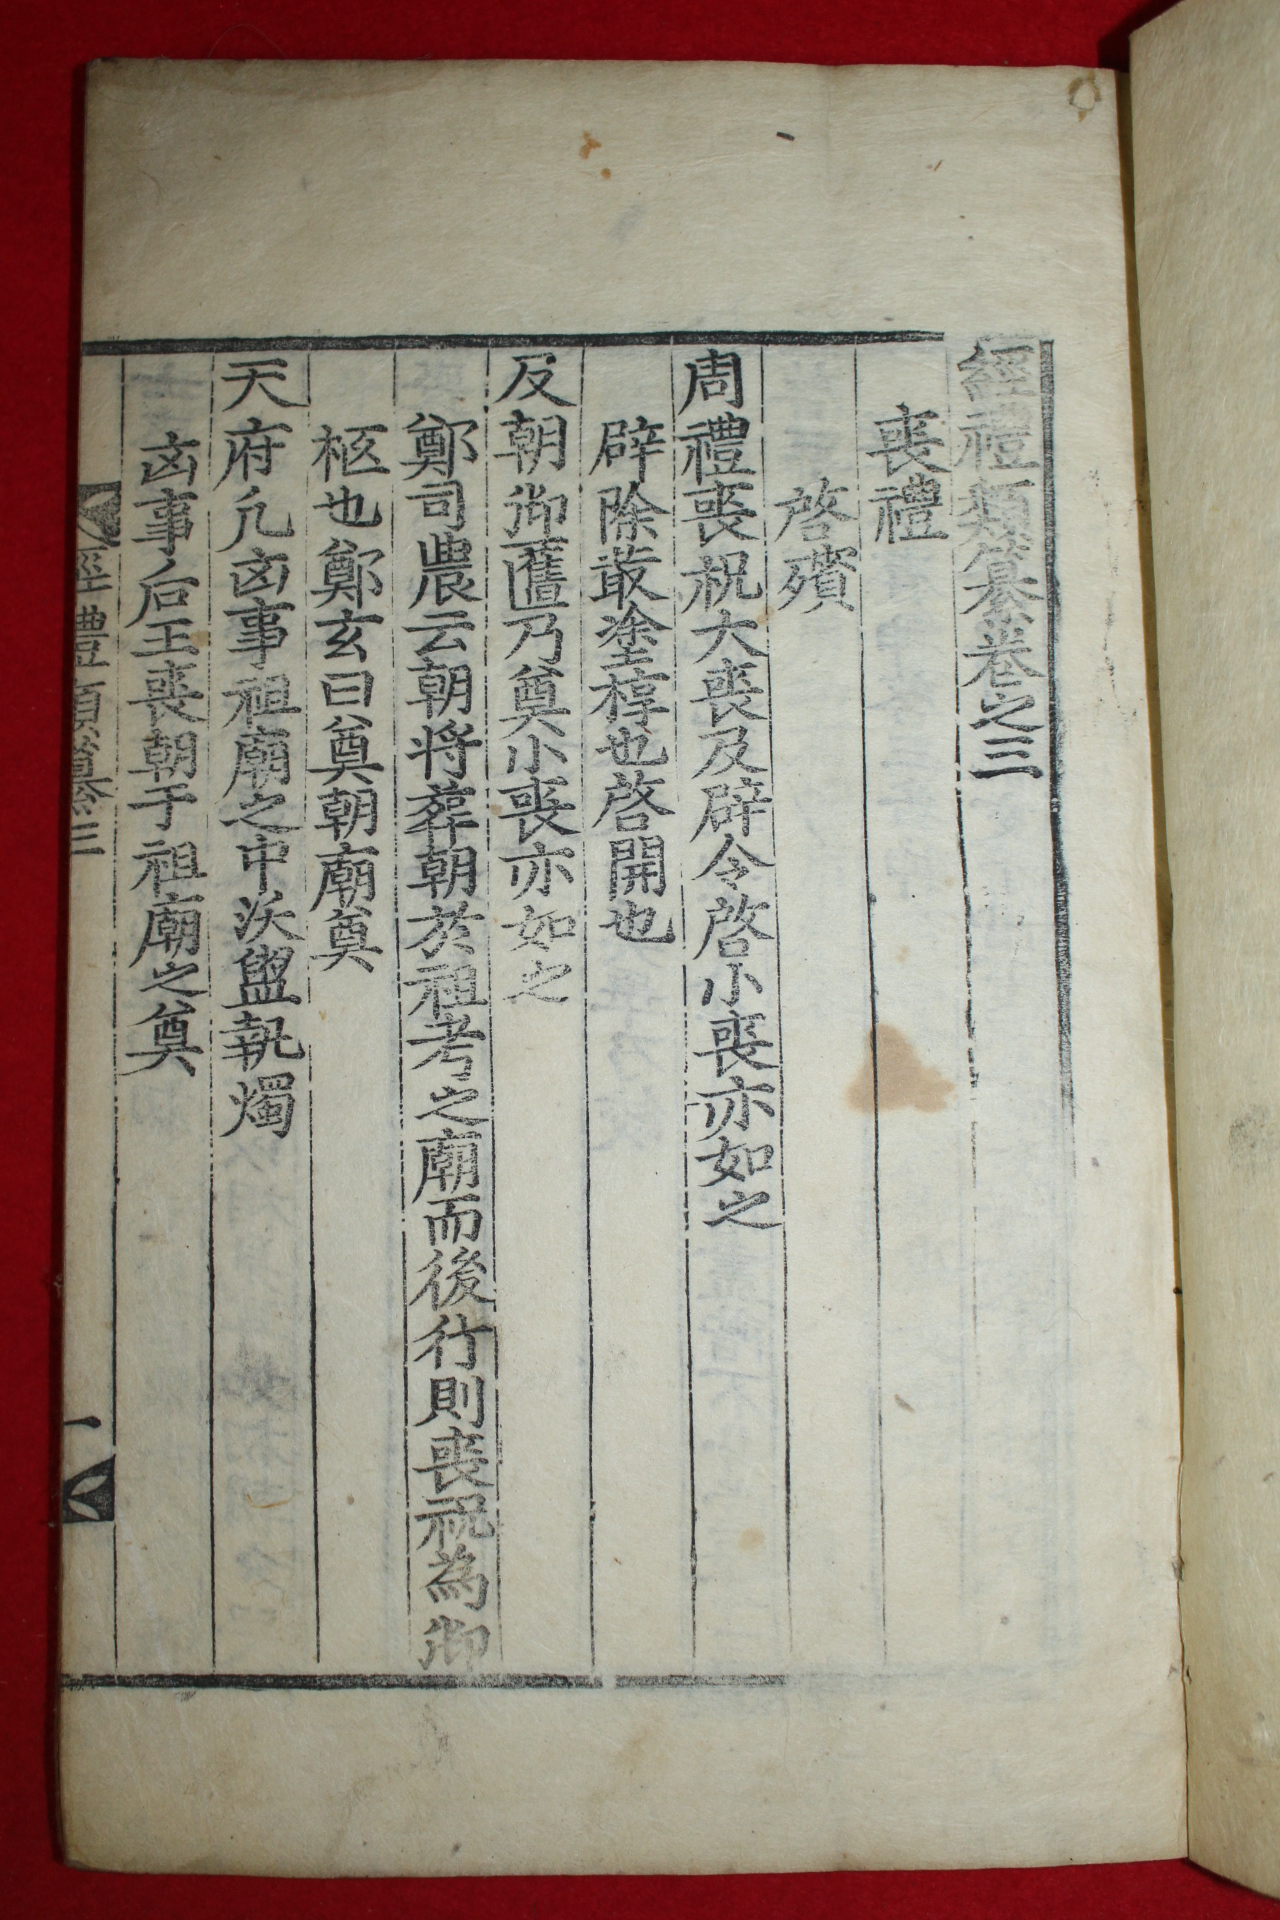 經禮類纂卷之三
喪禮
啓殯
周禮喪祝大喪及辟令啓小喪亦如之
辟除菆塗椁也啓開也
及朝御匶乃奠小喪亦如之
鄭司農云朝將葬朝於祖考之廟而後行則喪祝為御
柩也鄭玄曰奠朝廟奠
天府凡凶事祖廟之中沃盥執燭
凶事后王喪朝于祖廟之奠
經禮類纂三
一